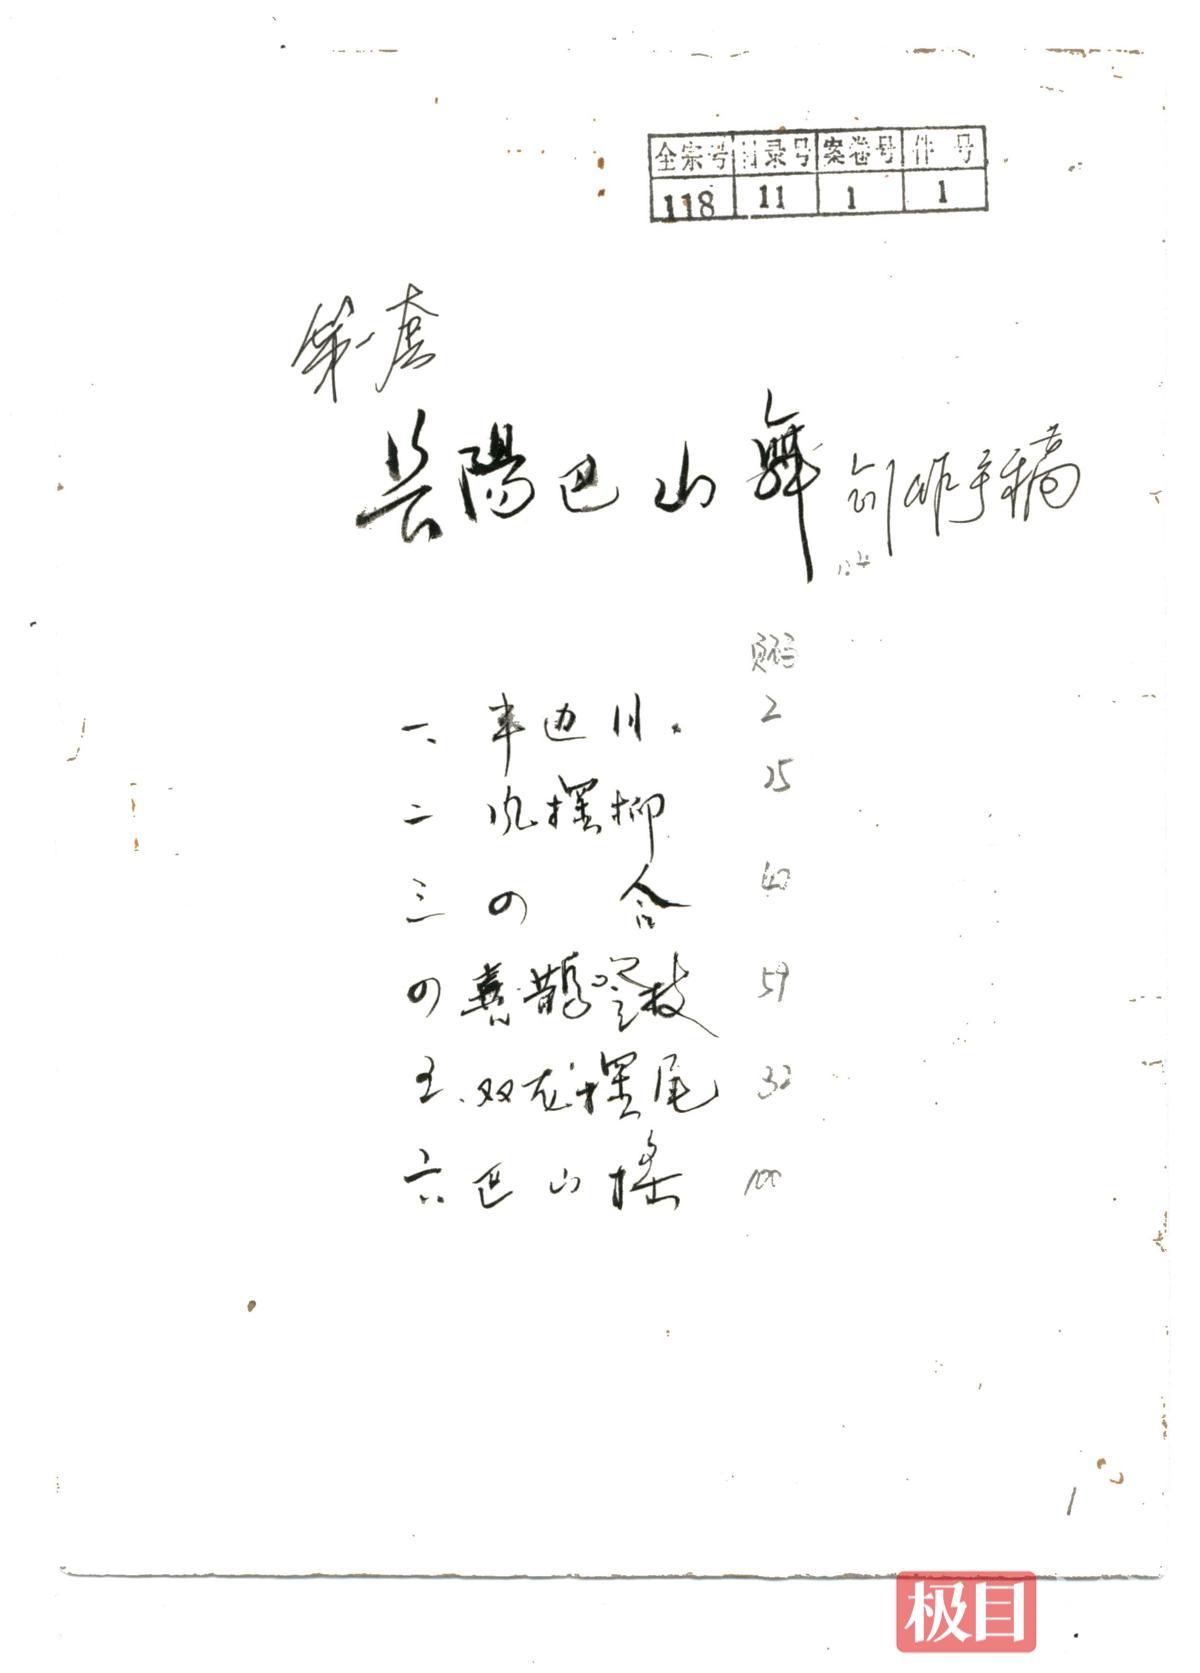 全宗号 目录号 案卷号 件号
118 11 1 1
第一套
长陽巴山舞 创作手稿
页码
一、半边月. 2
二 风摆柳 25
三 四合 40
四 喜鹊登枝 59
五.双龙摆尾 32
六 巴山摇 100
1
极目